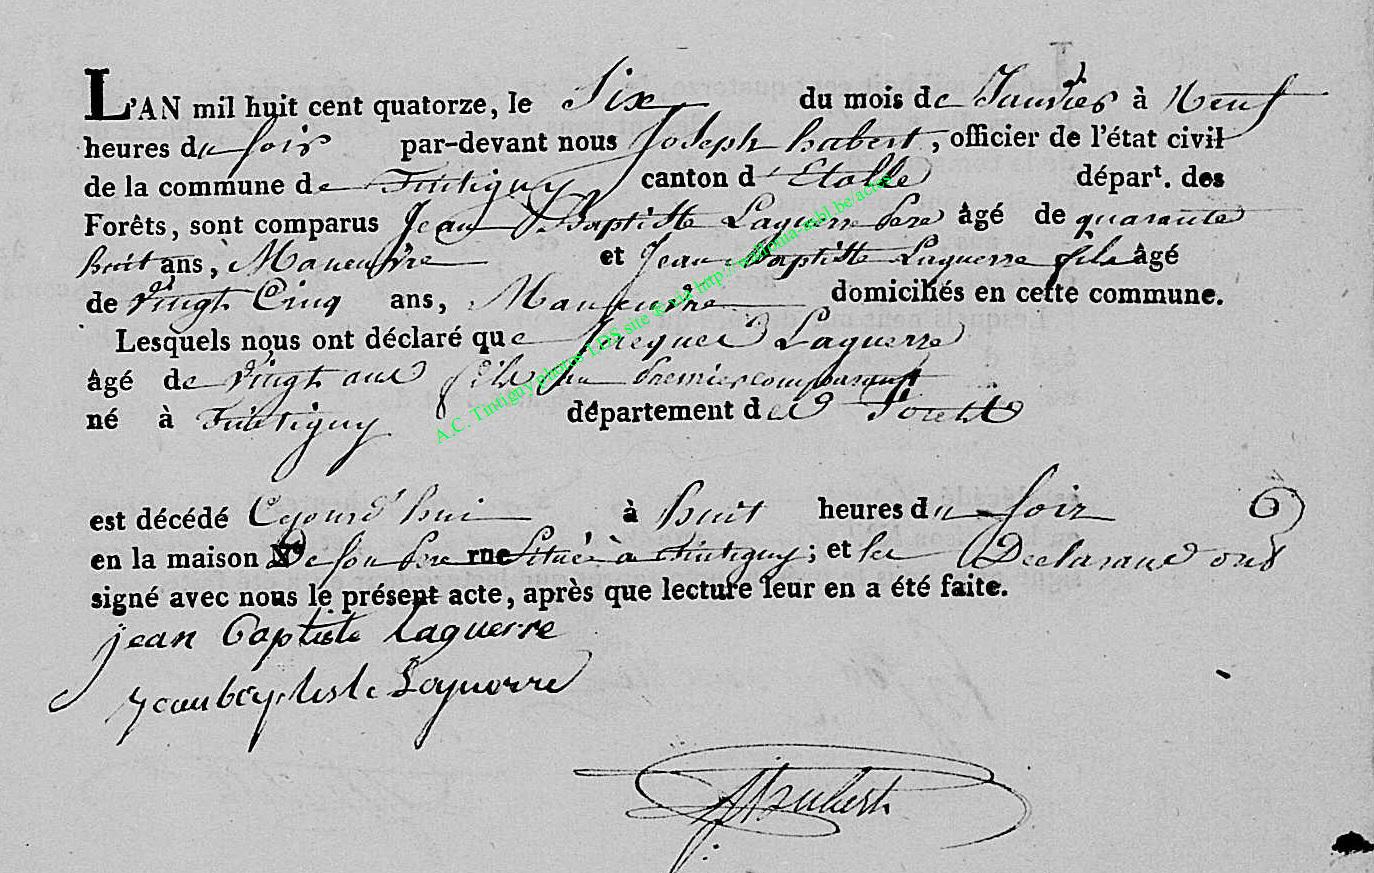 L'AN mil huit cent quatorze, le Six du mois de Janvier à Neuf
heures du soir par-devant nous Joseph habert, officier de l'état civil
de la commune de Tintigny canton d'Etalle départ. des
Forêts, sont comparus Jean Baptiste Laguerre pere âgé de quarante
huit ans, Maneuvre et Jean Baptiste Laguerre fils âgé
de vingt Cinq ans, Maneuvre domiciliés en cette commune.
Lesquels nous ont déclaré que Jacques Laguerre
âgé de vingt ans fils du premier comparant
né à Tintigny département des Forêts
est décédé Cejourd'hui à huit heures du soir
en la maison De son pere rue située à Tintigny; et les Declarans ont
signé avec nous le présent acte, après que lecture leur en a été faite.
jean baptiste laguerre
jean baptiste Laguerre
6
A.C. Tintigny photos LDS site © via http://wallonia-asbl.be/actes